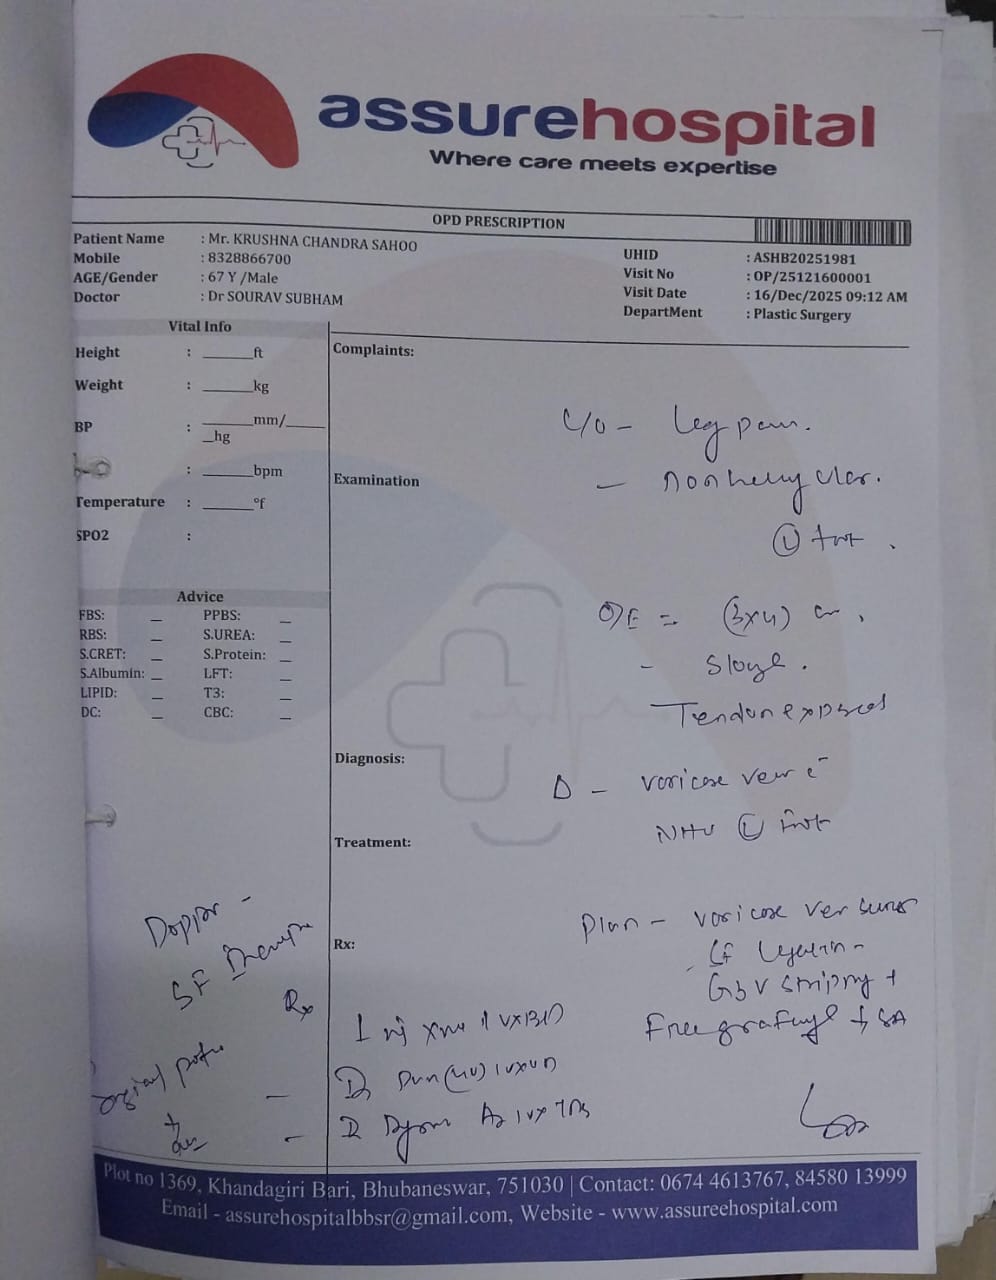 assurehospital
Where care meets expertise
OPD PRESCRIPTION
Patient Name : Mr. KRUSHNA CHANDRA SAHOO
Mobile : 8328866700
AGE/Gender : 67 Y /Male
Doctor : Dr SOURAV SUBHAM
UHID : ASHB20251981
Visit No : OP/25121600001
Visit Date : 16/Dec/2025 09:12 AM
DepartMent : Plastic Surgery
Vital Info
Height : ______ft
Weight : ______kg
BP : ______mm/____
_hg
: ______bpm
Temperature : ______°f
SPO2 :
Advice
FBS: _ PPBS: _
RBS: _ S.UREA: _
S.CRET: _ S.Protein: _
S.Albumin: _ LFT: _
LIPID: _ T3: _
DC: _ CBC: _
Complaints:
C/O - Leg pain.
Examination
- nonhealing ulcer.
(L) foot.
O/E = (3x4) cm,
- Slough.
Tendon exposed
Diagnosis:
D - varicose vein
NHU (L) foot
Treatment:
Plan - varicose vein
Rx:
GSV stripping +
Doppler -
SF
Rx
Inj
Plot no 1369, Khandagiri Bari, Bhubaneswar, 751030 | Contact: 0674 4613767, 84580 13999
Email - assurehospitalbbsr@gmail.com, Website - www.assureehospital.com